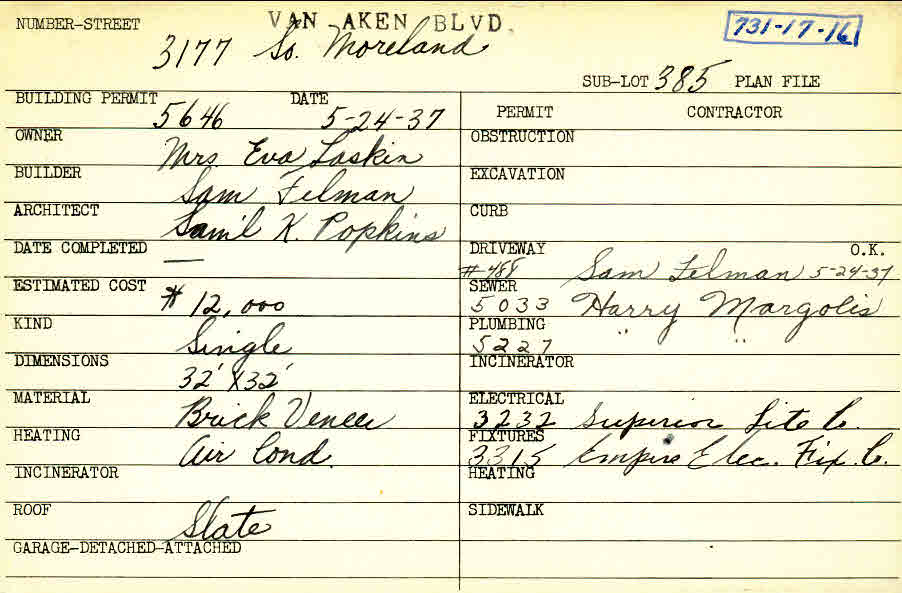 NUMBER-STREET VAN AKEN BLVD 731-17-16
3177 So. Moreland
SUB-LOT 385 PLAN FILE
BUILDING PERMIT DATE
5646 5-24-37
PERMIT CONTRACTOR
OWNER Mrs. Eva Laskin
OBSTRUCTION
BUILDER Sam Felman
EXCAVATION
ARCHITECT Sam'l K. Popkins
CURB
DATE COMPLETED —
DRIVEWAY O.K.
#488 Sam Felman 5-24-37
ESTIMATED COST $12,000
SEWER
5033 Harry Margolis
KIND Single
PLUMBING
5227 " "
DIMENSIONS 32' X 32'
INCINERATOR
MATERIAL Brick Veneer
ELECTRICAL
3232 Superior Lite Co.
HEATING Air Cond.
FIXTURES
3315 Empire Elec. Fix. Co.
INCINERATOR
HEATING
ROOF Slate
SIDEWALK
GARAGE-DETACHED-ATTACHED